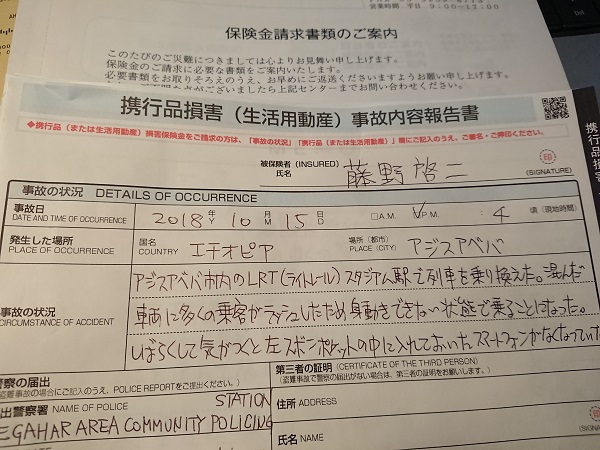 営業時間 平日 9:00~17:00
保険金請求書類のご案内
このたびのご災難につきましては心よりお見舞い申し上げます。
保険金のご請求に必要な書類をご案内いたします。
必要書類をお取りそろえのうえ、お早めにご返送くださいますようお願い申し上げます。
ございましたら上記センターまでお問い合わせください。
携行品損害(生活用動産)事故内容報告書
◆携行品(または生活用動産)損害保険金をご請求の方は、「事故の状況」「携行品(または生活用動産)」欄にご記入のうえ、ご署名・ご押印ください。
携行品損害
被保険者 (INSURED)
氏名
藤野啓二
印
(SIGNATURE)
事故の状況 DETAILS OF OCCURRENCE
事故日
DATE AND TIME OF OCCURRENCE
2018 年 Y 10 月 M 15 日 D □A.M. □P.M. : 4 頃(現地時間)
発生した場所
PLACE OF OCCURRENCE
国名
COUNTRY
エチオピア
場所(都市)
PLACE (CITY)
アジスアベバ
事故の状況
CIRCUMSTANCE OF ACCIDENT
アジスアベバ市内のLRT(ライトレール)スタジアム駅で列車を乗り換えた。混んだ
車両に多くの乗客がラッシュしたため身動きできない状態で乗ることになった。
しばらくして気がつくと左ズボンポケットの中に入れておいたスマートフォンがなくなっていた
警察の届出
盗難事故の場合にご記入のうえ、POLICE REPORTをご提出ください。)
出警察署 NAME OF POLICE STATION
EGAHAR AREA COMMUNITY POLICING
第三者の証明 (CERTIFICATE OF THE THIRD PERSON)
(盗難事故で警察の届出がない場合は、第三者の証明をお願いします。)
住所 ADDRESS
氏名 NAME
印
(SIGNATU